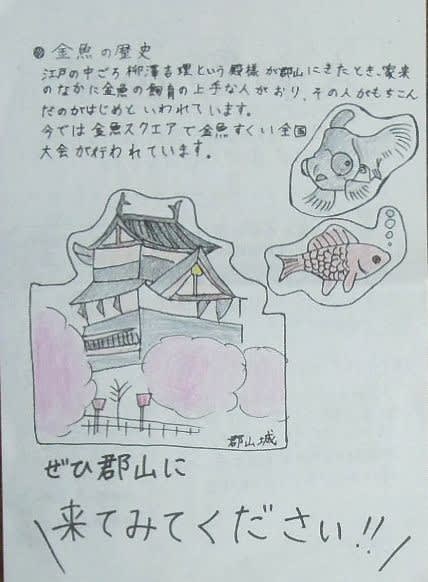 ●金魚の歴史
江戸の中ごろ柳澤吉理という殿様が郡山にきたとき、家来
のなかに金魚の飼育の上手な人がおり、その人がもちこん
だのがはじめといわれています。
今では金魚スクエアで金魚すくい全国
大会が行われています。
郡山城
ぜひ郡山に
来てみてください!!